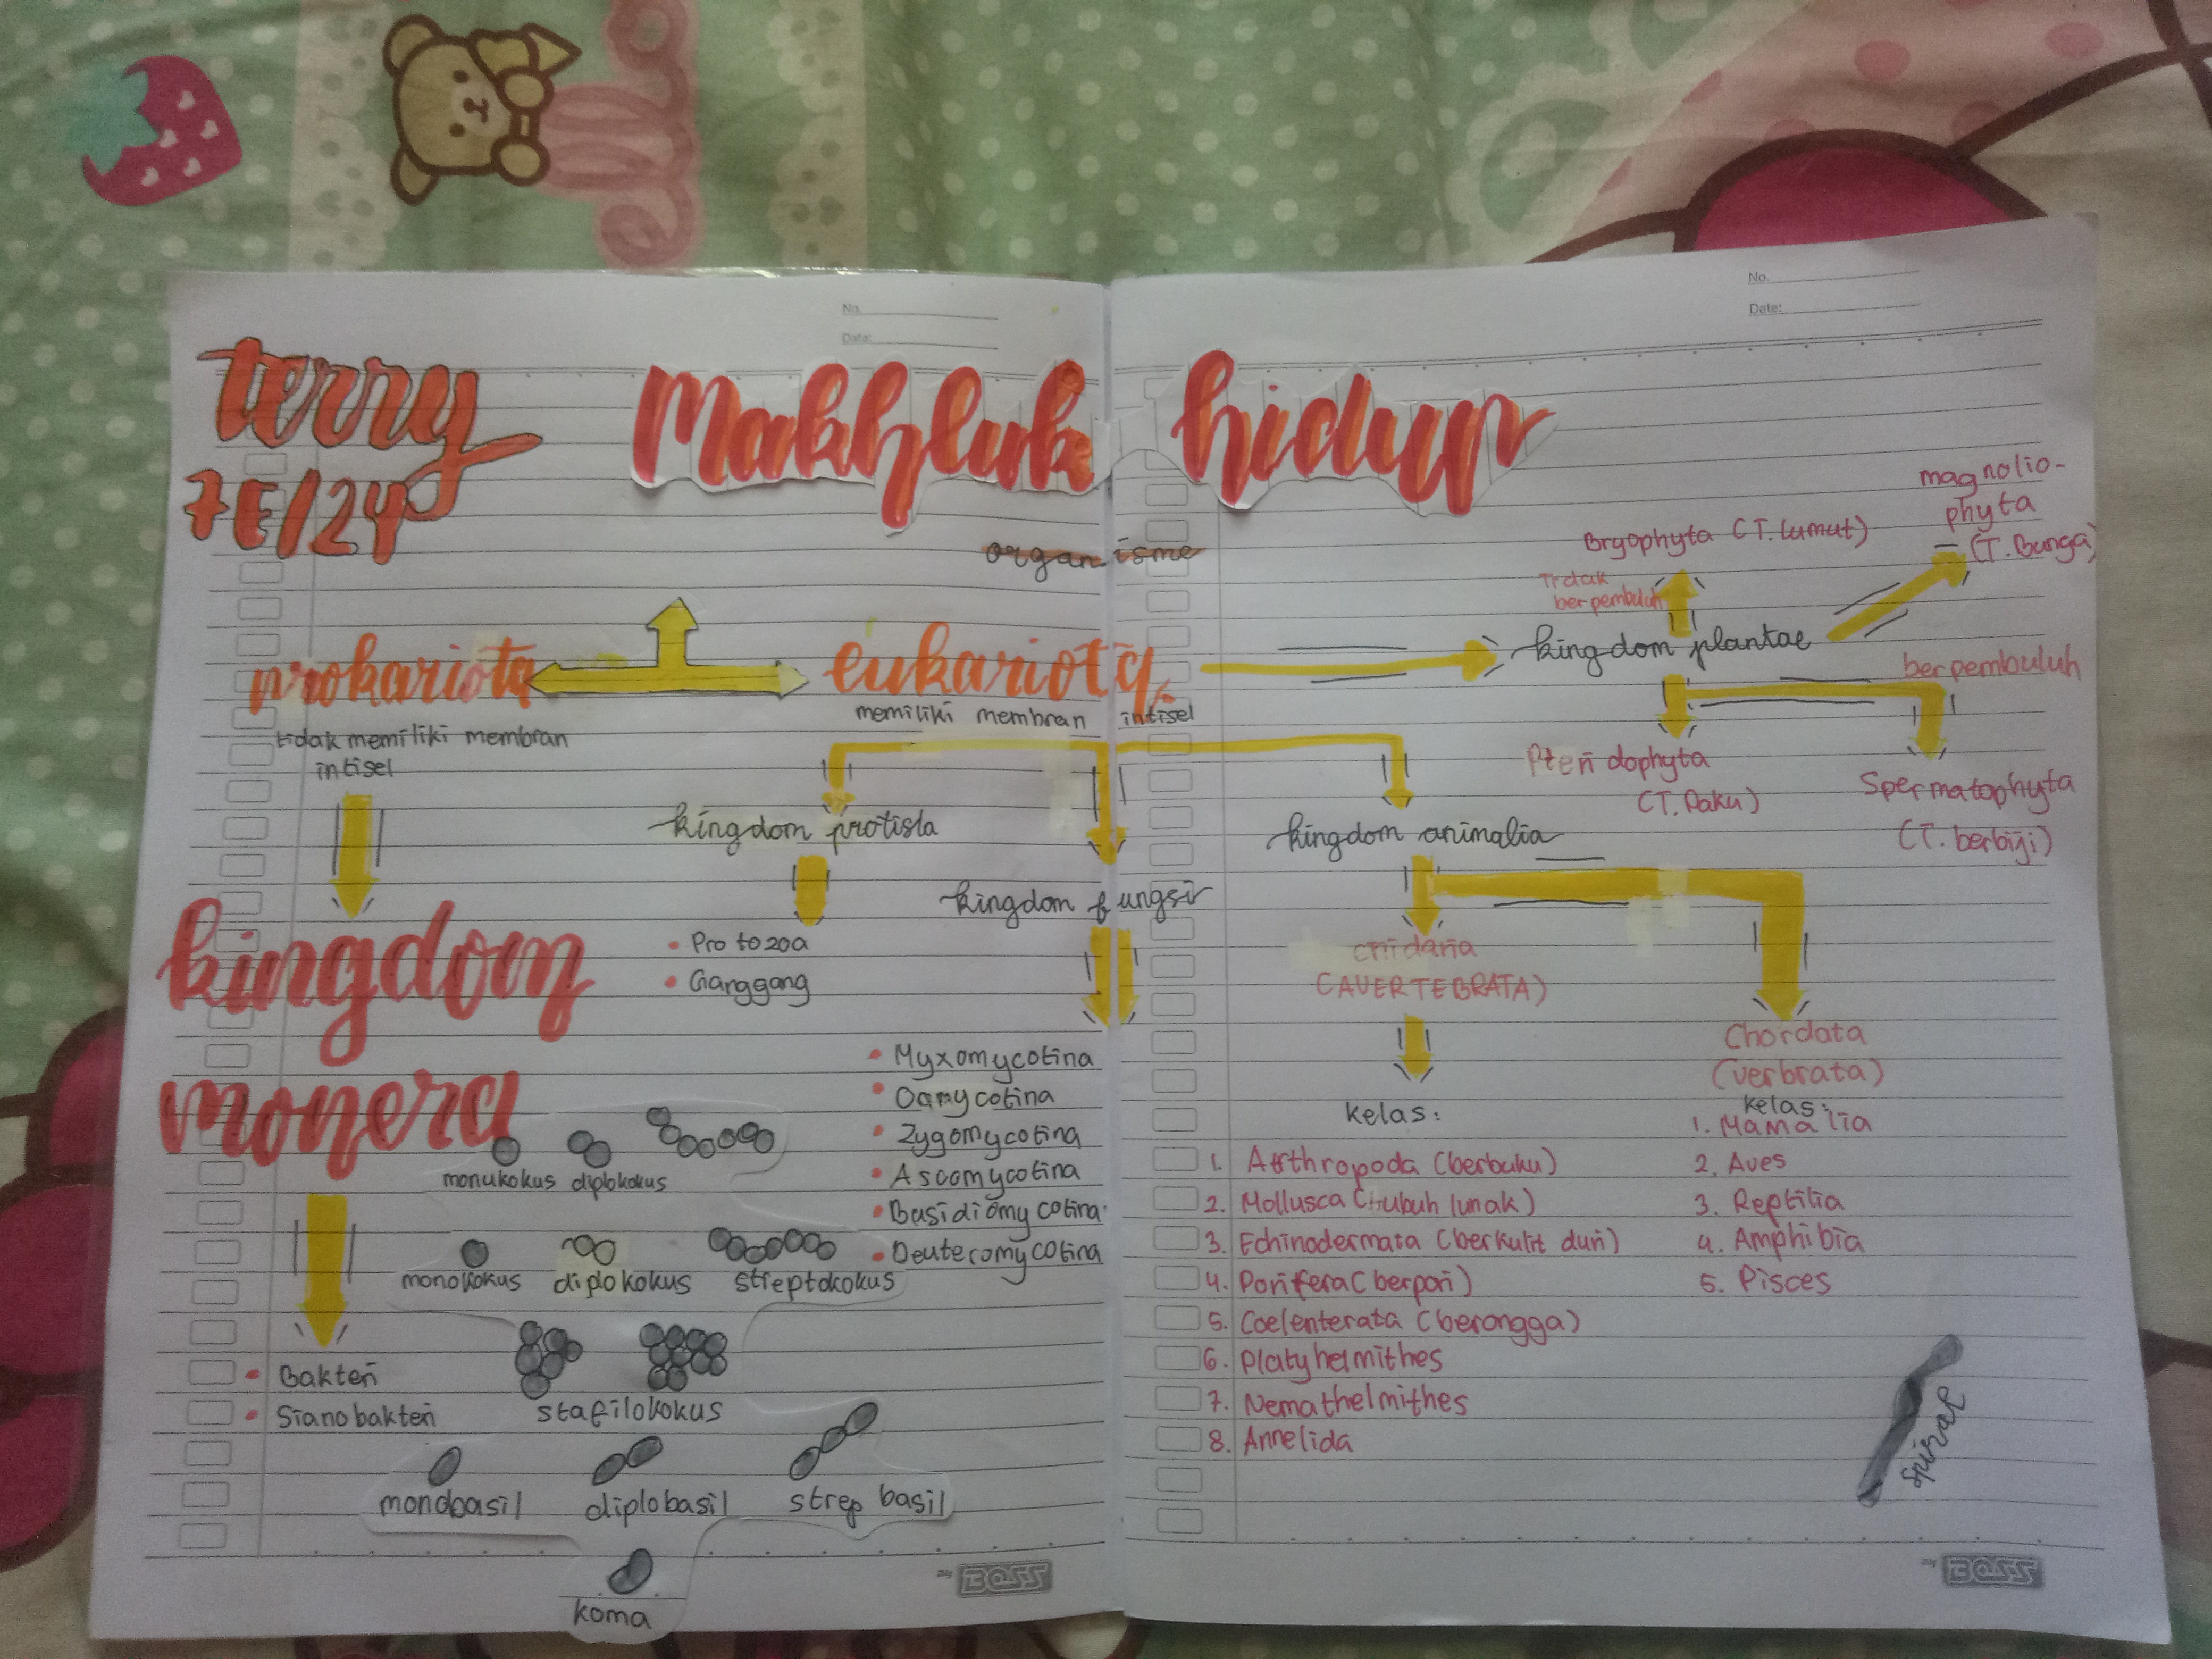 No.
Date:
No.
Date:
terry
7E/24
Makhluk hidup
organisme
prokariota
tidak memiliki membran
intisel
eukariota
memiliki membran intisel
kingdom plantae
Tidak
berpembuluh
Bryophyta (T. lumut)
magnolio-
phyta
(T. Bunga)
berpembuluh
Pteridophyta
(T. Paku)
Spermatophyta
(T. berbiji)
kingdom protista
• Protozoa
• Ganggang
kingdom fungsi
• Myxomycotina
• Oomycotina
• Zygomycotina
• Ascomycotina
• Basidiomycotina
• Deuteromycotina
kingdom animalia
Cnidaria
(AVERTEBRATA)
kelas:
1. Arthropoda (berbuku)
2. Mollusca (tubuh lunak)
3. Echinodermata (berkulit duri)
4. Porifera (berpori)
5. Coelenterata (berongga)
6. Platyhelmithes
7. Nemathelmithes
8. Annelida
Chordata
(verbrata)
kelas:
1. Mamalia
2. Aves
3. Reptilia
4. Amphibia
5. Pisces
kingdom
monera
• Bakteri
• Sianobakteri
monukokus diplokokus
monokokus diplokokus streptokokus
stafilokokus
monobasil diplobasil strep basil
koma
spiral
BOSS
BOSS